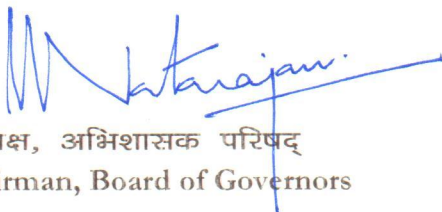 Natarajan.
क्ष, अभिशासक परिषद्
irman, Board of Governors